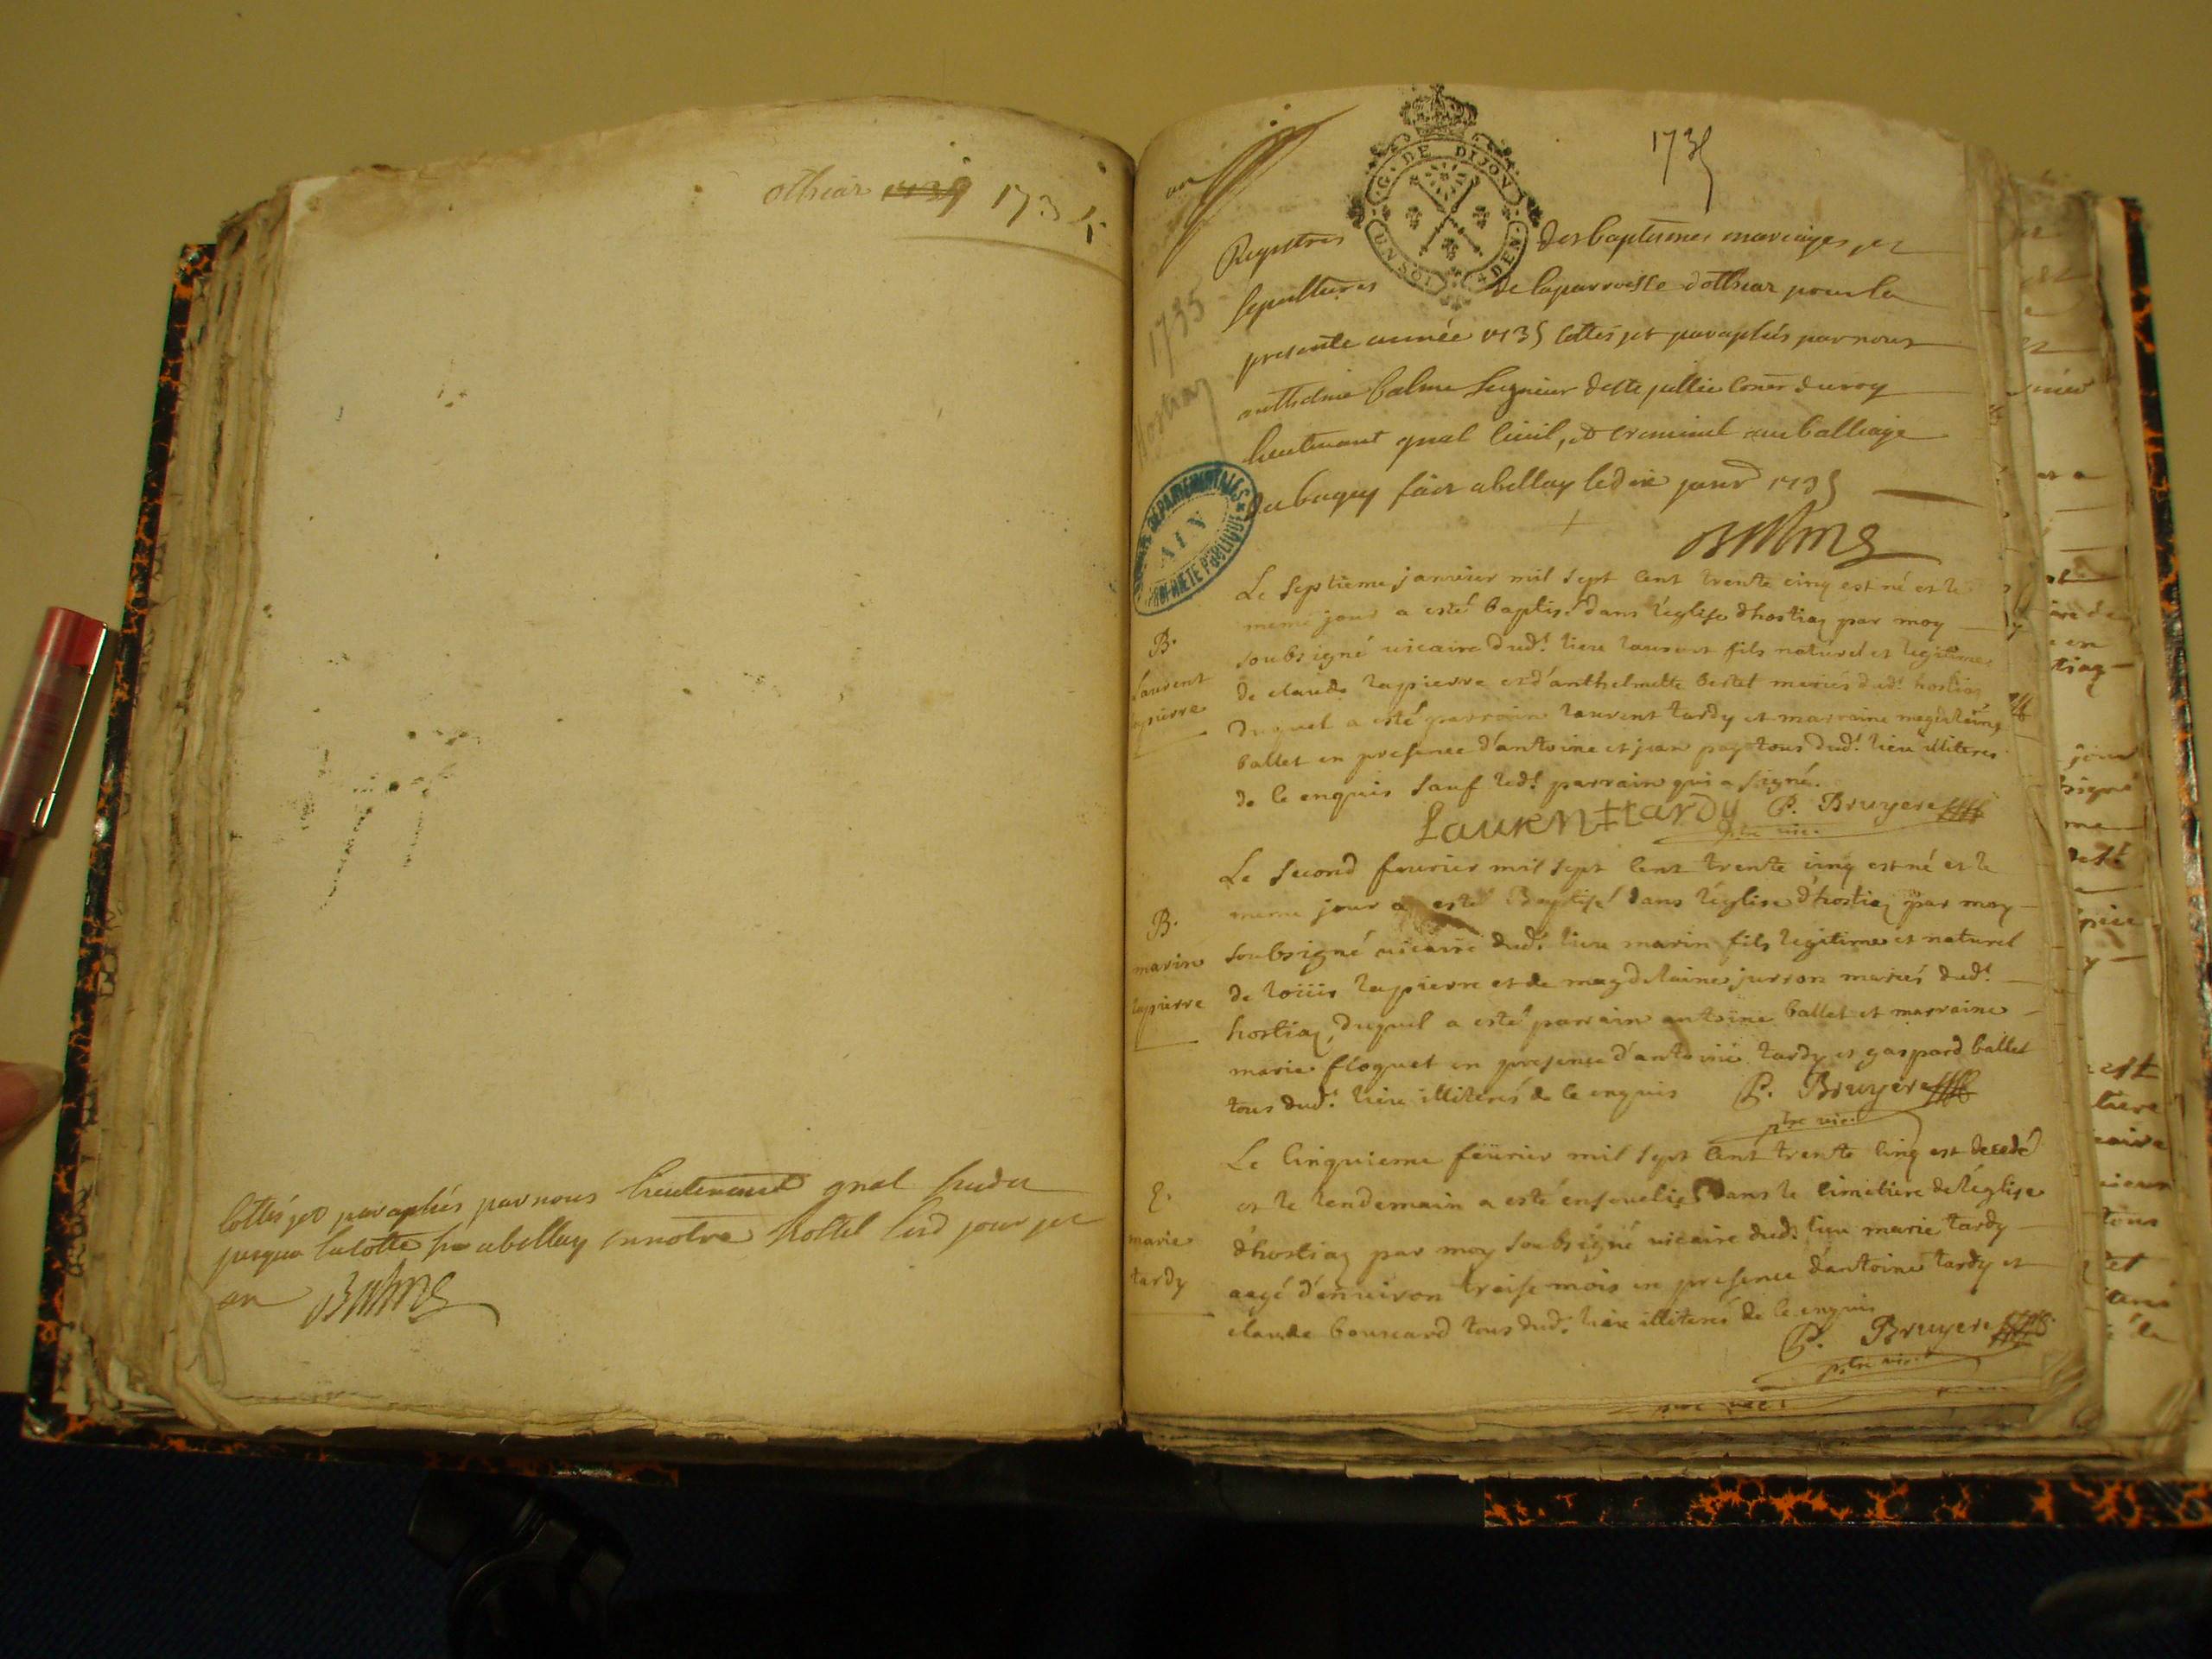 othiar 1739 1735
Cottés et paraphés par nous lieutenant gnal
jusqua abellay en notre hostel jour et
an Balme
1735
G. DE DIJON
UN SOL
DEN
Registres des baptesmes mariages et
sepultures de la parroisse dothiar pour la
presente année 1735 cottés et paraphés par nous
anthelme balme seigneur de Ste jullie coner du roy
lieutenant gnal civil, et criminel au balliage
du bugey fait a bellay le dix janr 1735
Balme
1735
hostiaz
ARCHIVES DÉPARTEMENTALES
AIN
PROPRIÉTÉ PUBLIQUE
B.
Laurent
lapierre
Le septieme janvier mil sept cent trente cinq est né et le
meme jour a esté baptisé dans l'eglise dhostiaz par moy
soubsigné vicaire dud.t lieu laurent fils naturel et legitime
de claude lapierre et d'anthelmette bertet mariés dud.t hostiaz
duquel a esté parrain laurent tardy et marraine magdelaine
ballet en presence d'antoine et jean pay tous dud.t lieu illiteres
de ce enquis sauf led.t parrain qui a signé.
Laurent tardy P. Bruyere
ptre vic.
B.
marin
lapierre
Le second feuvrier mil sept cent trente cinq est né et le
meme jour a esté Baptisé dans l'eglise d'hostiaz par moy
soubsigné vicaire dud.t lieu marin fils legitime et naturel
de loüis lapierre et de magdelaine jurron mariés dud.t
hostiaz, duquel a esté parrain antoine ballet et marraine
marie floquet en presence d'antoine tardy et gaspard ballet
tous dud.t lieu illiterés de ce enquis P. Bruyere
ptre vic.
E.
marie
tardy
Le cinquieme feüvrier mil sept cent trente cinq est decedé
et le lendemain a esté ensevelie dans le cimetiere de l'eglise
d'hostiaz par moy soubsigné vicaire dud.t lieu marie tardy
aagé d'environ treise mois en presence d'antoine tardy et
claude bouscard tous dud.t lieu illiterés de ce enquis
P. Bruyere
ptre vic.